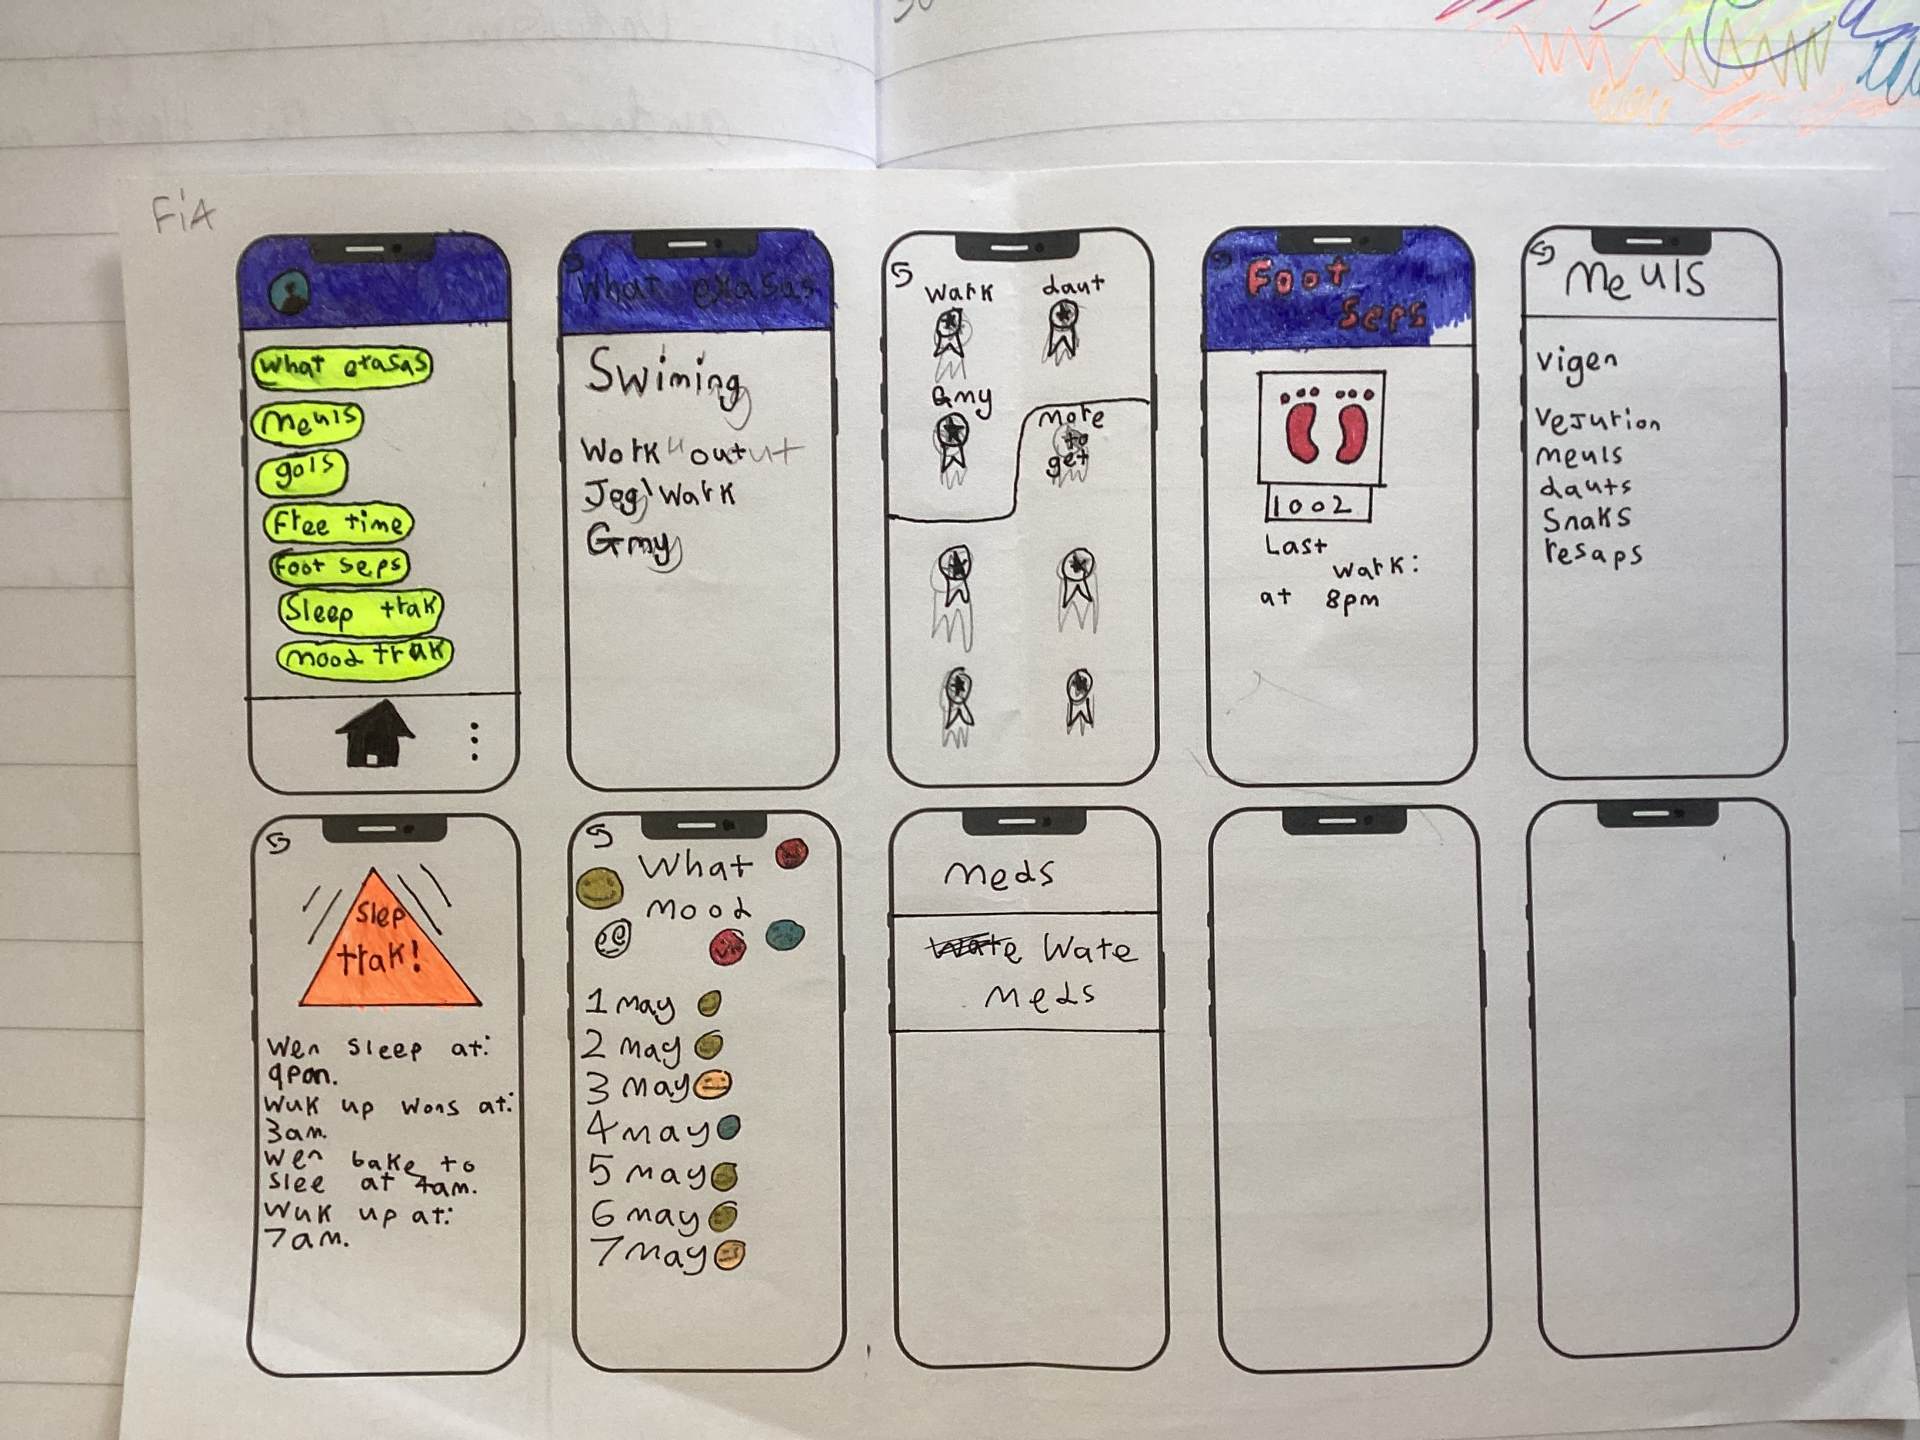 FiA
What exasas
Meuls
gols
Free time
Foot seps
Sleep trak
Mood trak
What exasas
Swiming
Work out
Jog Wark
Gmy
Wark
daut
Gmy
More
to
get
Foot
Seps
1002
Last
wark:
at 8pm
Meuls
Vigen
Vejurion
meuls
dauts
Snaks
resaps
Slep
trak!
Wen sleep at:
9pm.
Wuk up wons at:
3am.
Wen bake to
slee at 4am.
Wuk up at:
7am.
What
Mood
1 may
2 may
3 may
4 may
5 may
6 may
7 may
Meds
Wate
Meds